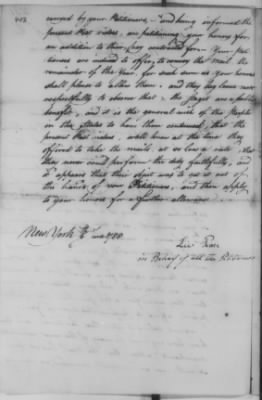 carryed by your Petitioners — and being informed the
present Post riders, are petitioning your honors for
an addition to their pay contracted for. Your Peti-
tioners are induced to offer, to carry the mail the
remainder of the Year, for such sum as your honors
shall please to allow them. and they beg leave most
respectfully to observe that the stages are a public
benefit, and it is the general wish of the People
in the States to have them continued, that the
present Post riders, well knew at the time they
offered to take the mails, at so low a rate, that
they never could perform the duty faithfully, and
it appears that their object was to get it out of
the hands of your Petitioners, and then apply
to your honors for a further allowance
New York
Levi Pease
in Behalf of all the Petitioners